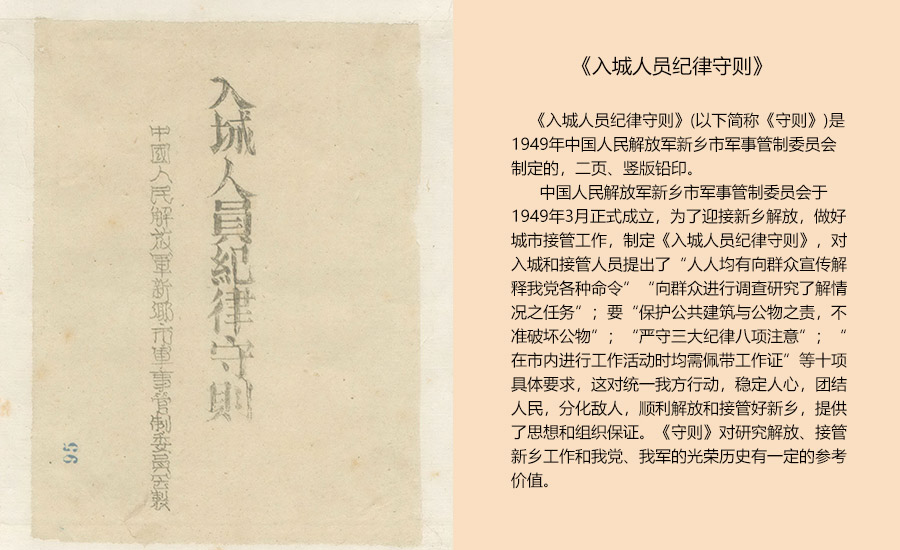 入城人員紀律守則
中國人民解放軍新鄉市軍事管制委員会製
95
《入城人员纪律守则》
《入城人员纪律守则》(以下简称《守则》)是
1949年中国人民解放军新乡市军事管制委员会
制定的，二页、竖版铅印。
中国人民解放军新乡市军事管制委员会于
1949年3月正式成立，为了迎接新乡解放，做好
城市接管工作，制定《入城人员纪律守则》，对
入城和接管人员提出了“人人均有向群众宣传解
释我党各种命令”“向群众进行调查研究了解情
况之任务”；要“保护公共建筑与公物之责，不
准破坏公物”；“严守三大纪律八项注意”；“
在市内进行工作活动时均需佩带工作证”等十项
具体要求，这对统一我方行动，稳定人心，团结
人民，分化敌人，顺利解放和接管好新乡，提供
了思想和组织保证。《守则》对研究解放、接管
新乡工作和我党、我军的光荣历史有一定的参考
价值。